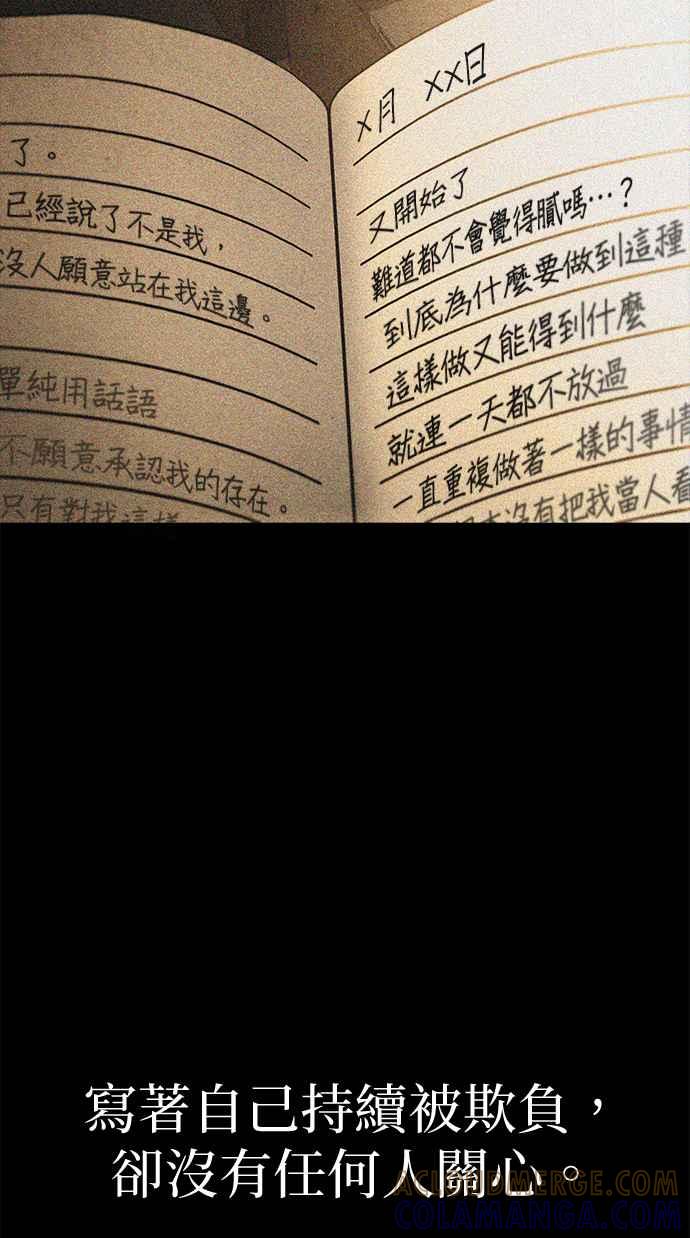 了。
已經說了不是我，
沒人願意站在我這邊。
單純用話語
不願意承認我的存在。
只有對我這樣
×月 ××日
又開始了
難道都不會覺得膩嗎…？
到底為什麼要做到這種
這樣做又能得到什麼
就連一天都不放過
一直重複做著一樣的事情
沒有把我當人看
寫著自己持續被欺負，
卻沒有任何人關心。
ACLOUDMERGE.COM
COLAMANGA.COM